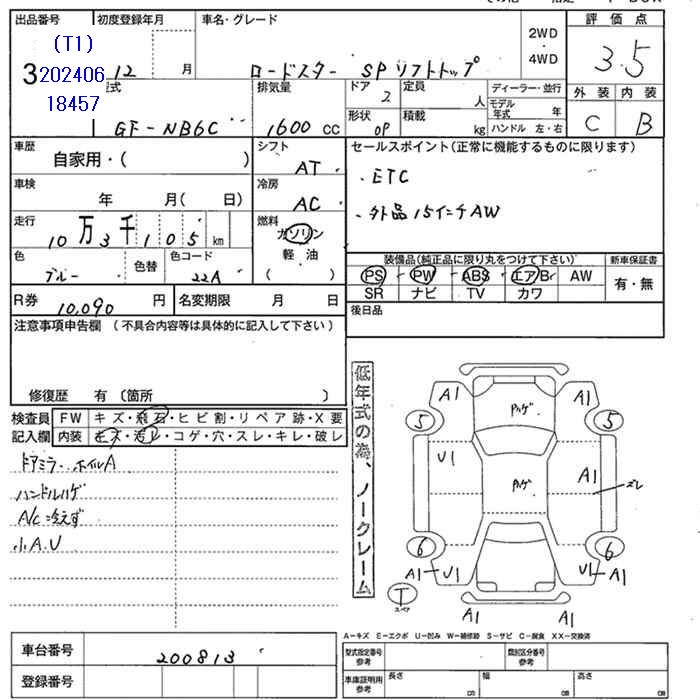 出品番号 初度登録年月 車名・グレード 評価点
(T1)
3 202406
18457
12 月 ロードスター SPソフトトップ 2WD ・ 4WD 3.5
型式 排気量 ドア 2 定員 人 ディーラー・並行 外装 内装
GF-NB6C 1600 cc 形状 OP 積載 kg モデル年式 年 C B
ハンドル 左・右
車歴 シフト セールスポイント(正常に機能するものに限ります)
自家用・( ) AT
・ETC
車検 冷房
年 月( 日) AC ・外品15インチAW
走行 燃料
10万3千105km ガソリン
軽油
( )
色 色替 色コード 装備品(純正品に限り丸をつけて下さい) 新車保証書
ブルー 22A PS PW ABS エアB AW 有・無
SR ナビ TV カワ
R券 10,090 円 名変期限 月 日 後日品
注意事項申告欄 (不具合内容等は具体的に記入して下さい)
修復歴 有 (箇所 )
検査員 FW キズ・飛石・ヒビ割・リペア跡・X要
記入欄 内装 キズ・汚レ・コゲ・穴・スレ・キレ・破レ
ドアミラー・ホイルA
ハンドルハゲ
A/C冷えず
小A.U
低年式の為、ノークレーム
A1 A1
5 ハゲ 5
U1 A1
ハゲ ズレ
6 6
A1 U1 U1 A1
T
スペア
A1 A1
A-キズ E-エクボ U-凹み W-補修跡 S-サビ C-腐食 XX-交換済
車台番号 200813
登録番号
型式指定番号 参考 類別区分番号 参考
車庫証明用 参考 長さ cm 幅 cm 高さ cm